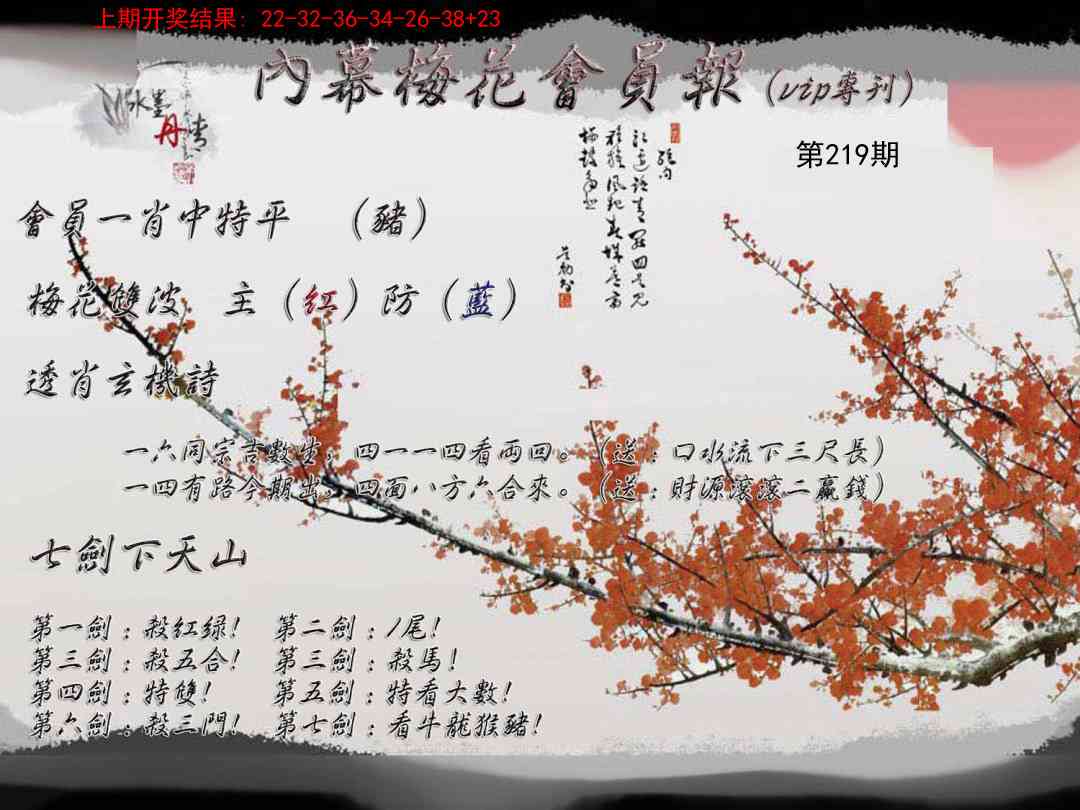 上期开奖结果: 22-32-36-34-26-38+23
內幕梅花會員報(vip專刊)
水墨丹青
第219期
會員一肖中特平 (豬)
梅花雙波 主(紅)防(藍)
透肖玄機詩
一六同宗吉數生,四一一四看兩回。(送:口水流下三尺長)
一四有路今期出,四面八方六合來。(送:財源滾滾二贏錢)
七劍下天山
第一劍:殺紅绿! 第二劍:1尾!
第三劍:殺五合! 第三劍:殺馬!
第四劍:特雙! 第五劍:特看大數!
第六劍:殺三門! 第七劍:看牛龍猴豬!